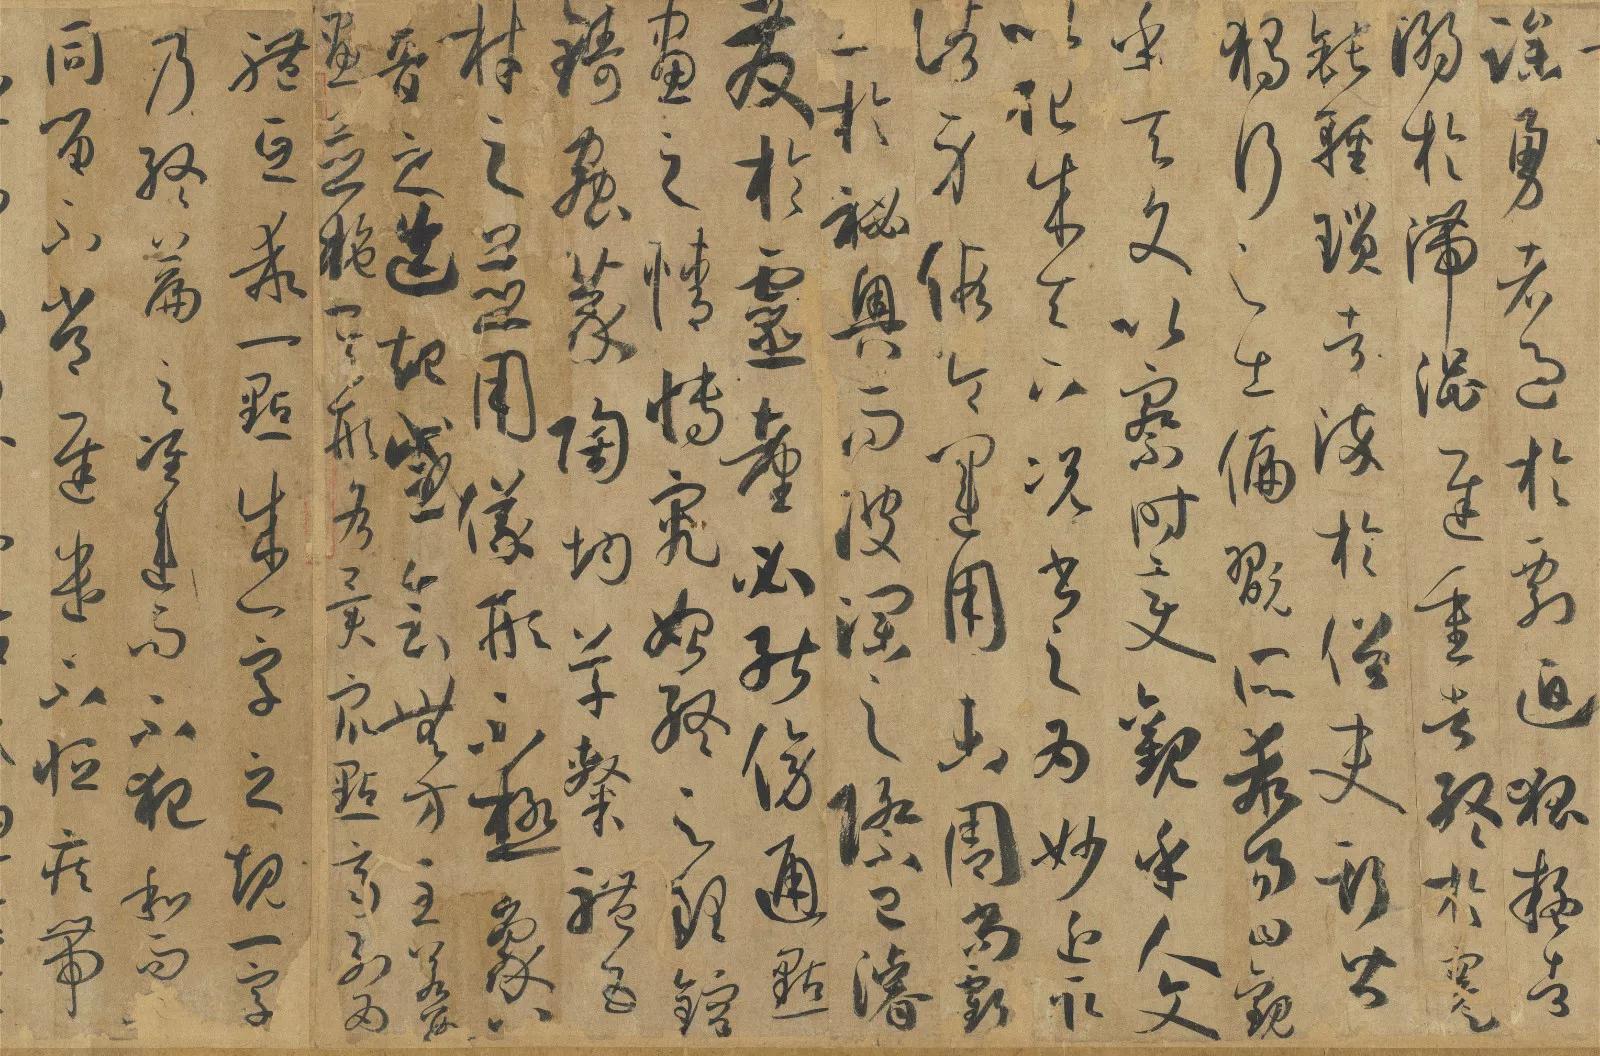 躁勇者過於剽迫狐疑者
溺於滯澀遲重者終於蹇
鈍輕瑣者染於俗吏斯皆
獨行之士偏翫所乖易曰觀
乎天文以察時變觀乎人文
以化成天下況書之為妙近取
諸身假令運用未周尚虧
工於祕奧而波瀾之際已濬
發於靈臺必能傍通點
畫之情博究始終之理鎔
鑄蟲篆陶均草隸體五
材之並用儀形不極象八
音之迭起感會無方至若數
畫並施其形各異眾點齊列為
體互乖一點成一字之規一字
乃終篇之準違而不犯和而
同留不常遲遣不恒疾帶